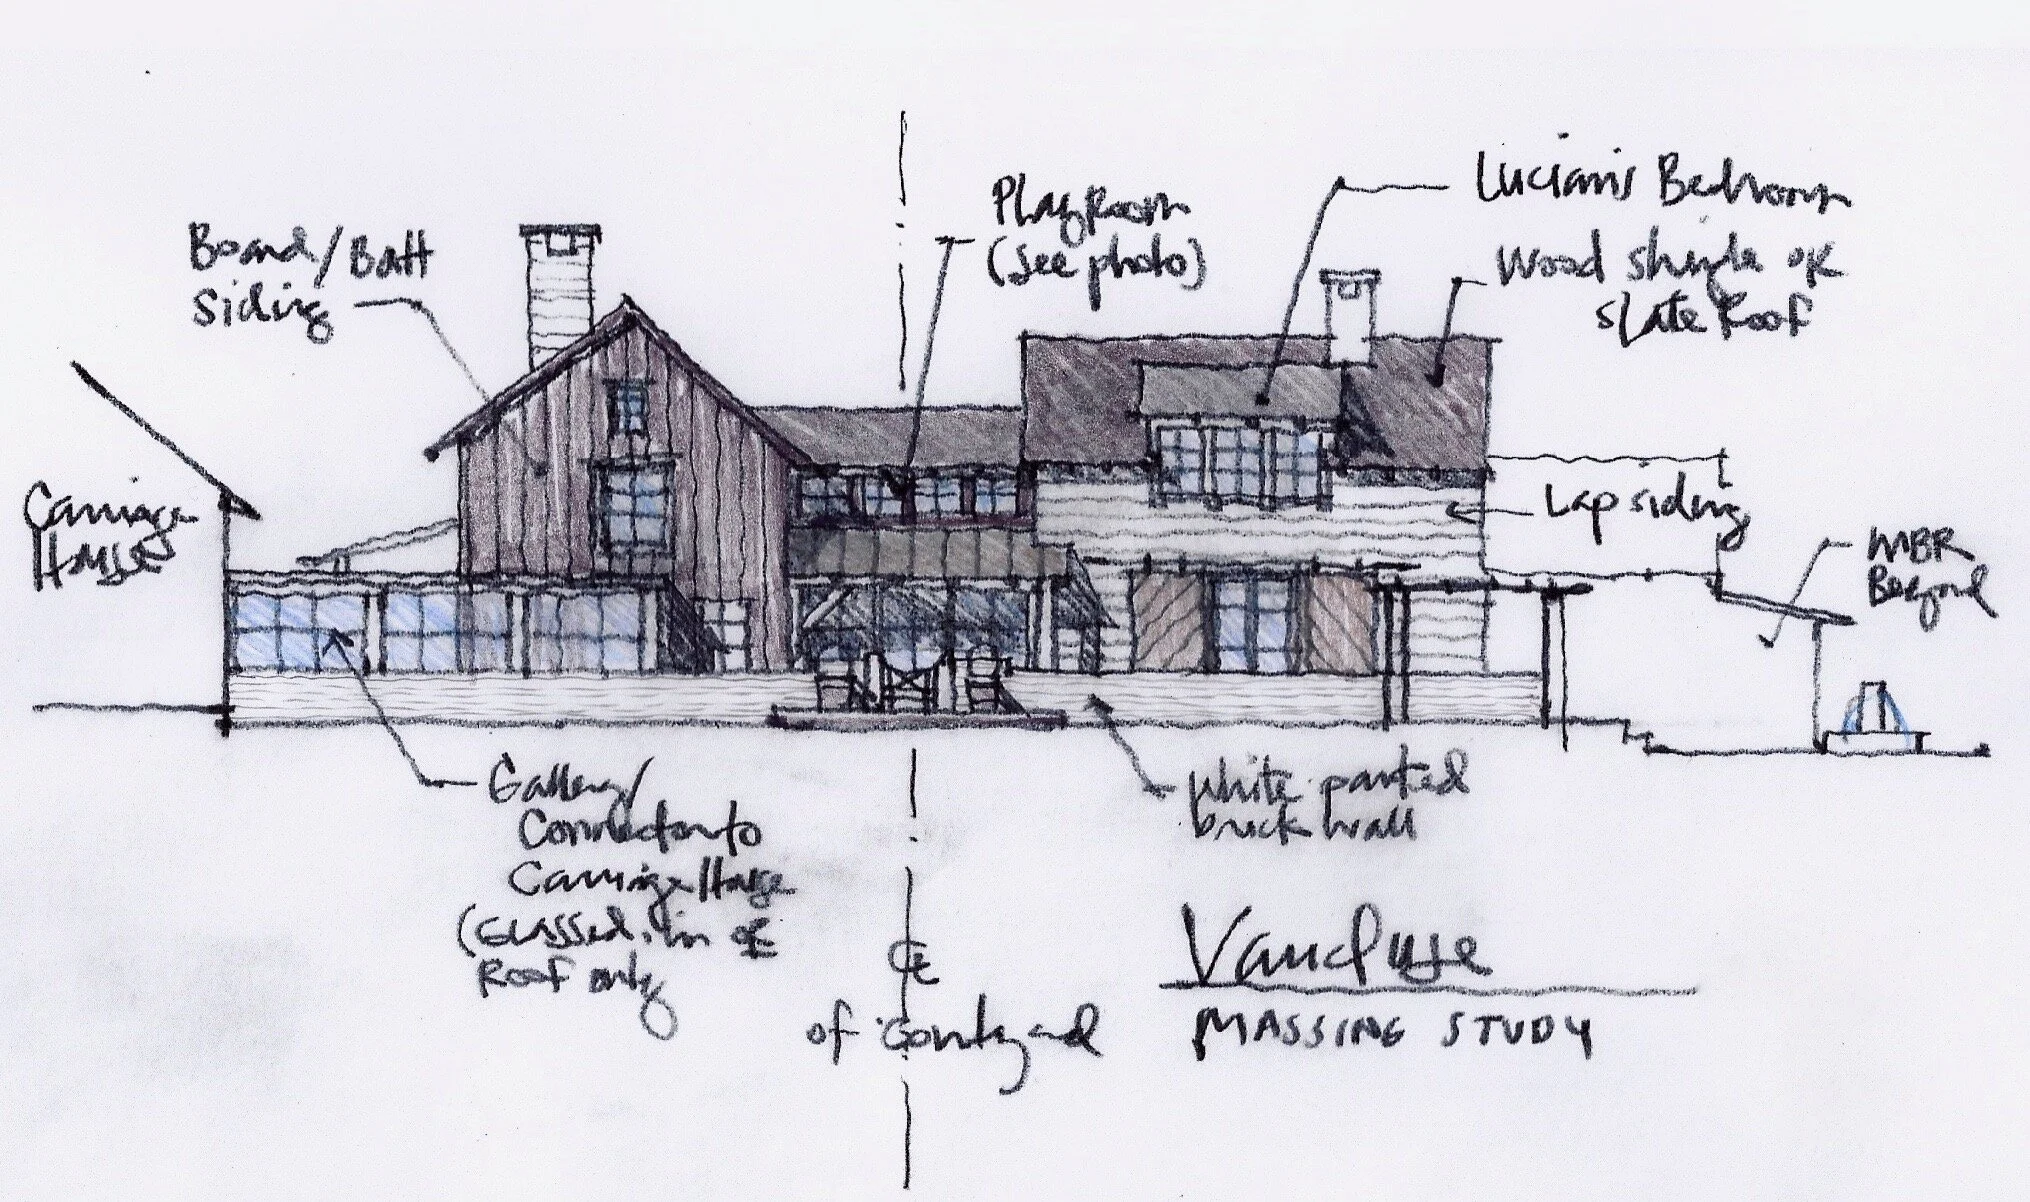 Board/Batt
Siding
Playroom
(see photo)
Lucian's Bedroom
Wood shingle or
slate Roof
Carriage
House
Lap siding
MBR
Beyond
Gallery/
Connector to
Carriage House
(Glassed-in or
Roof only
white painted
brick wall
℄
of courtyard
Vaucluse
MASSING STUDY